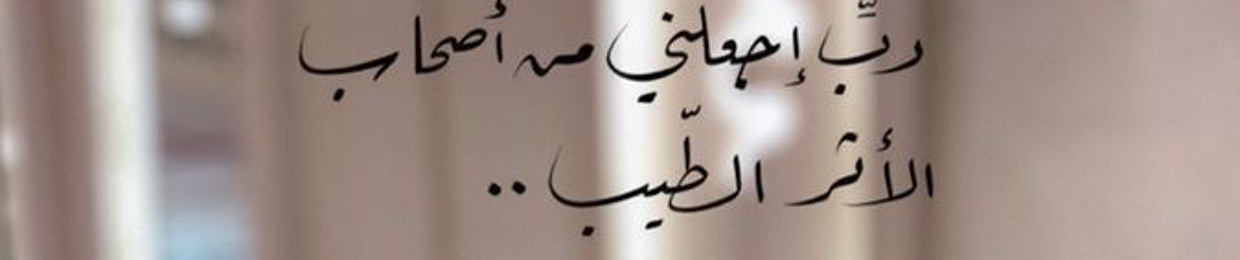 ربَّ إجعلني من أصحاب
الأثر الطّيب ..